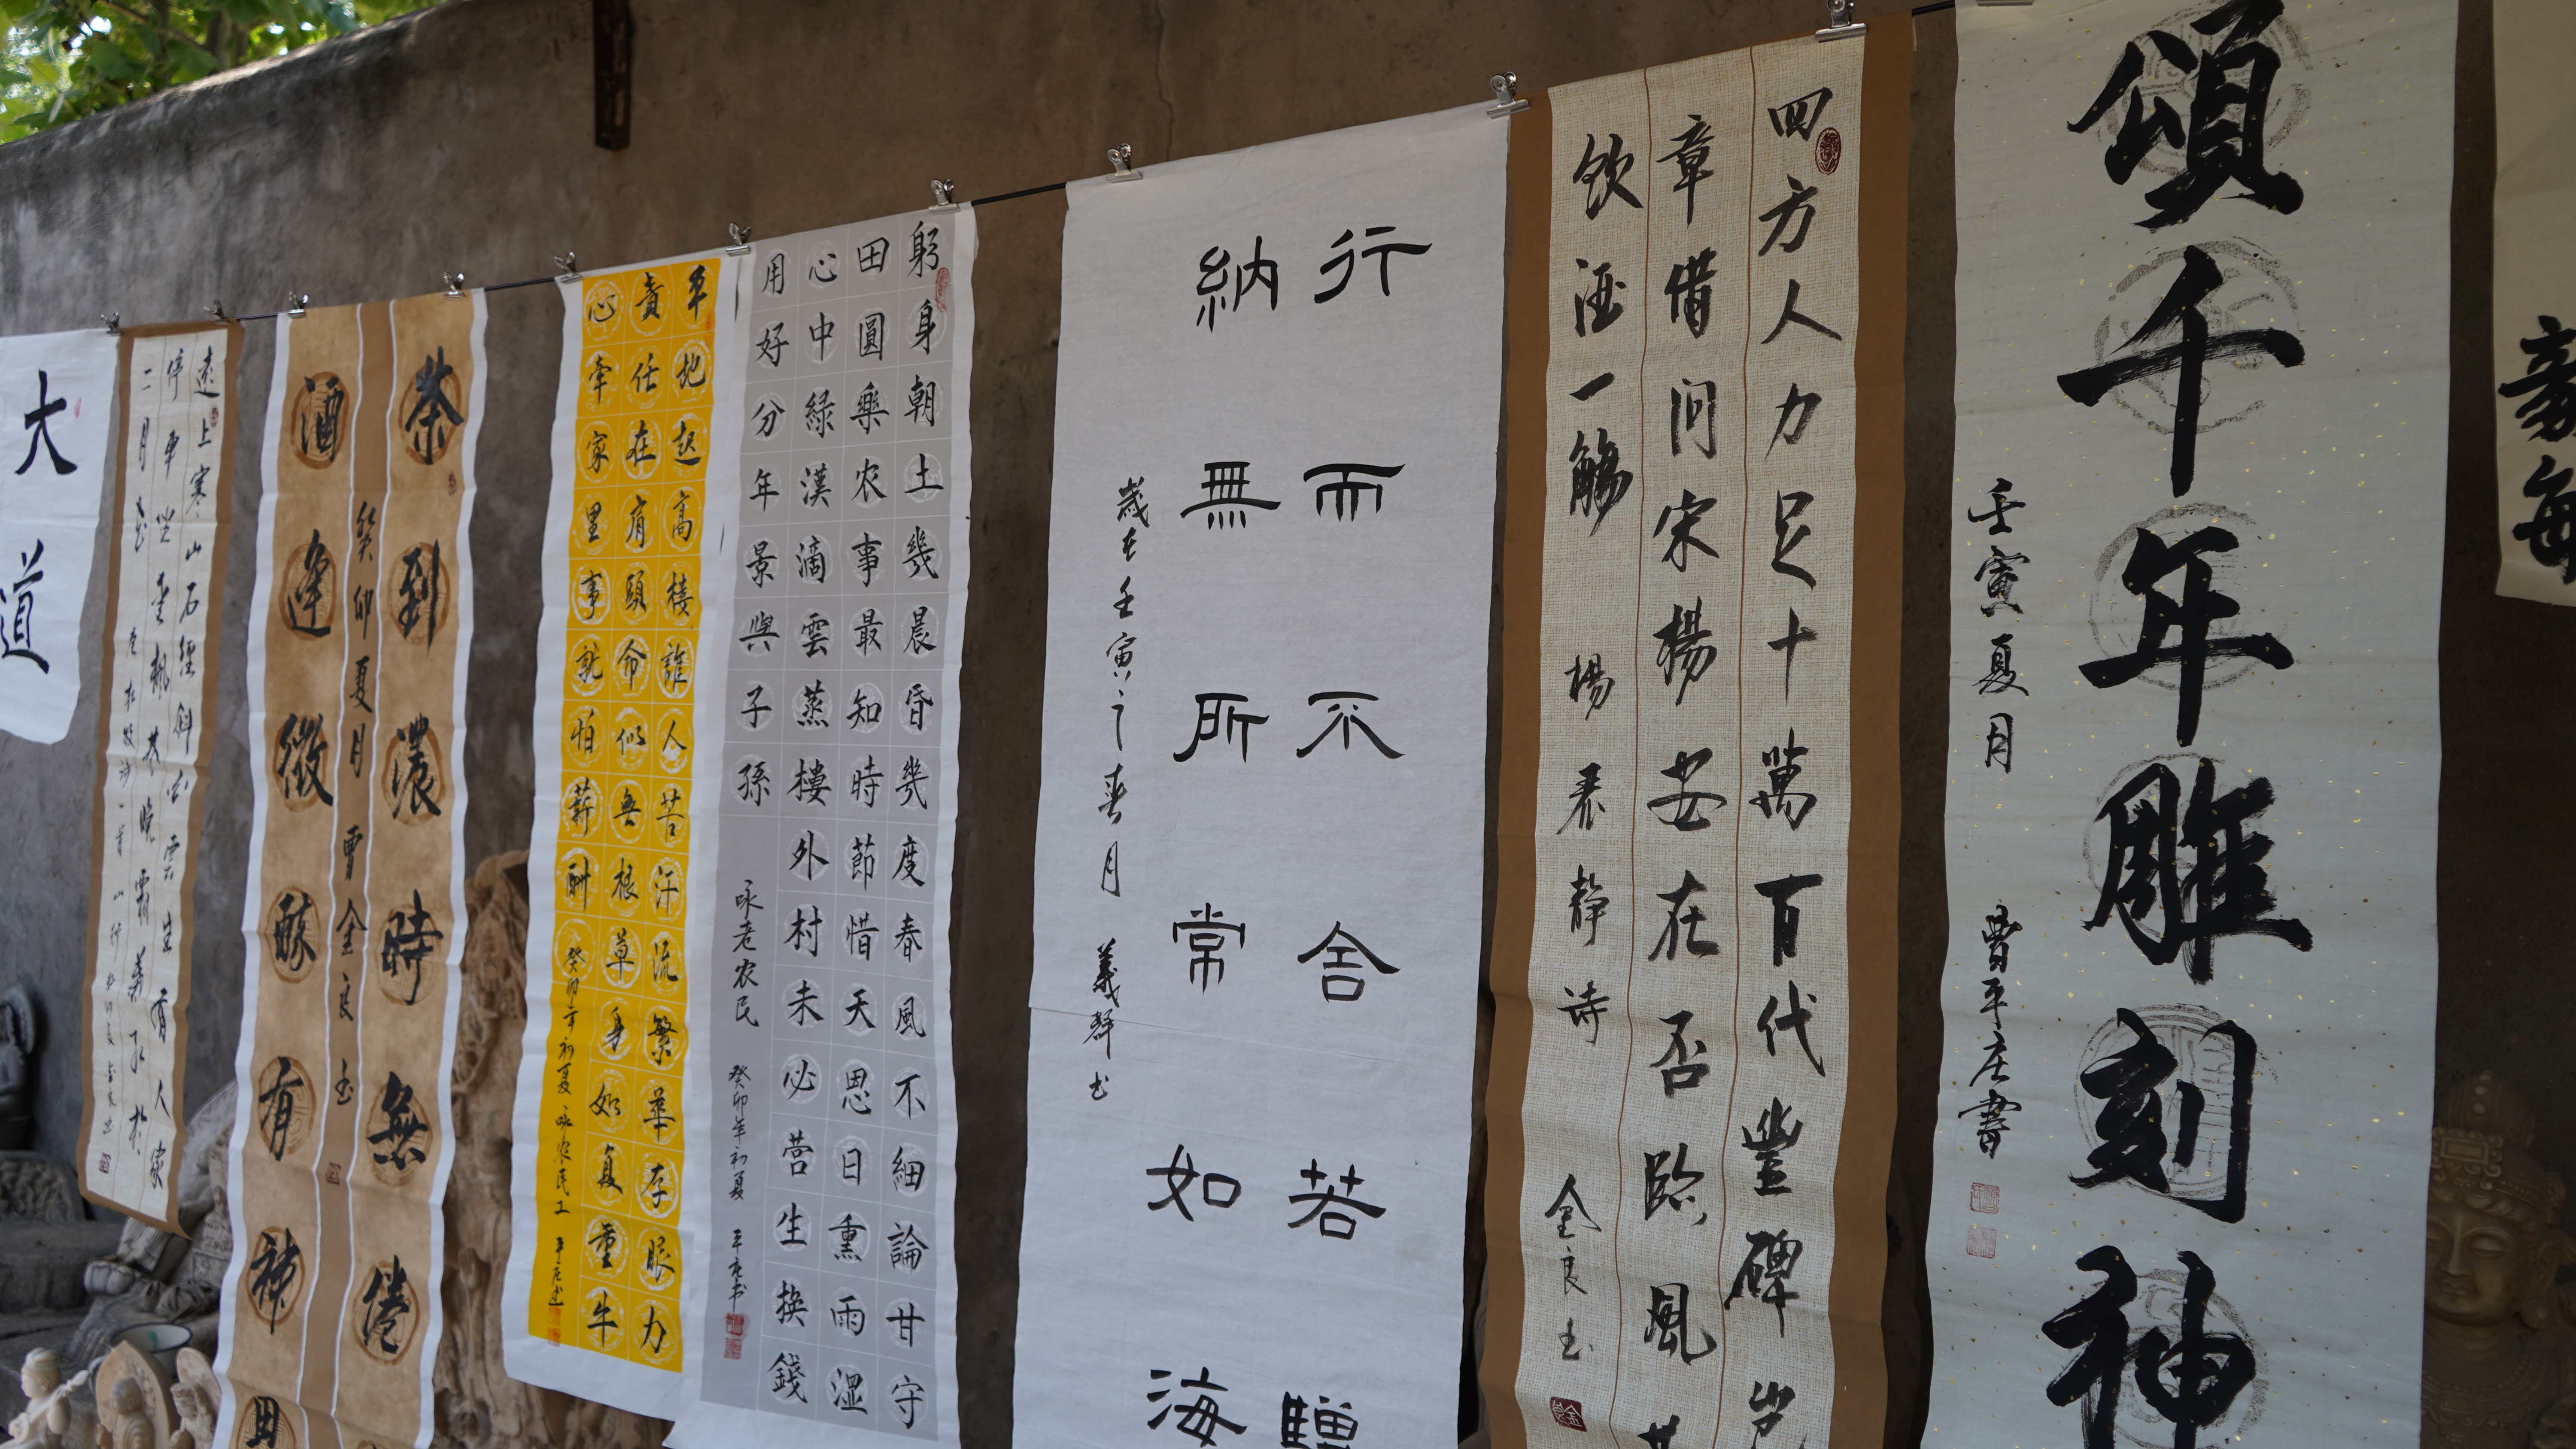 毫每
頌千年雕刻神
壬寅夏月
曹平庄書
四方人人力足十萬百代豐碑岂
章借问宋杨安在否臨風
饮酒一觞
杨君静诗
金良书
行而不舍若驊
納無所常如海
歲在壬寅之春月
義群书
躬身朝土幾晨昏幾度春風不細論甘守
田圓樂农事最知時節惜天思日熏雨湿
心中緑漢滴雲蒸樓外村未必营生换錢
用好分年景與子孫
咏老农民
癸卯年初夏
平庄书
平地起高楼誰人苦汗流繁華存眼力
責任在肩頭命似無根草身如負重牛
心牵家里事就怕薪酬
癸卯年初夏
咏农民工
平庄书
茶到濃時無倦
酒逢微酥有神
癸卯夏月
曹金良书
遠上寒山石經斜白雲生處有人家
停車坐愛楓林晚霜葉红於
二月花
大道